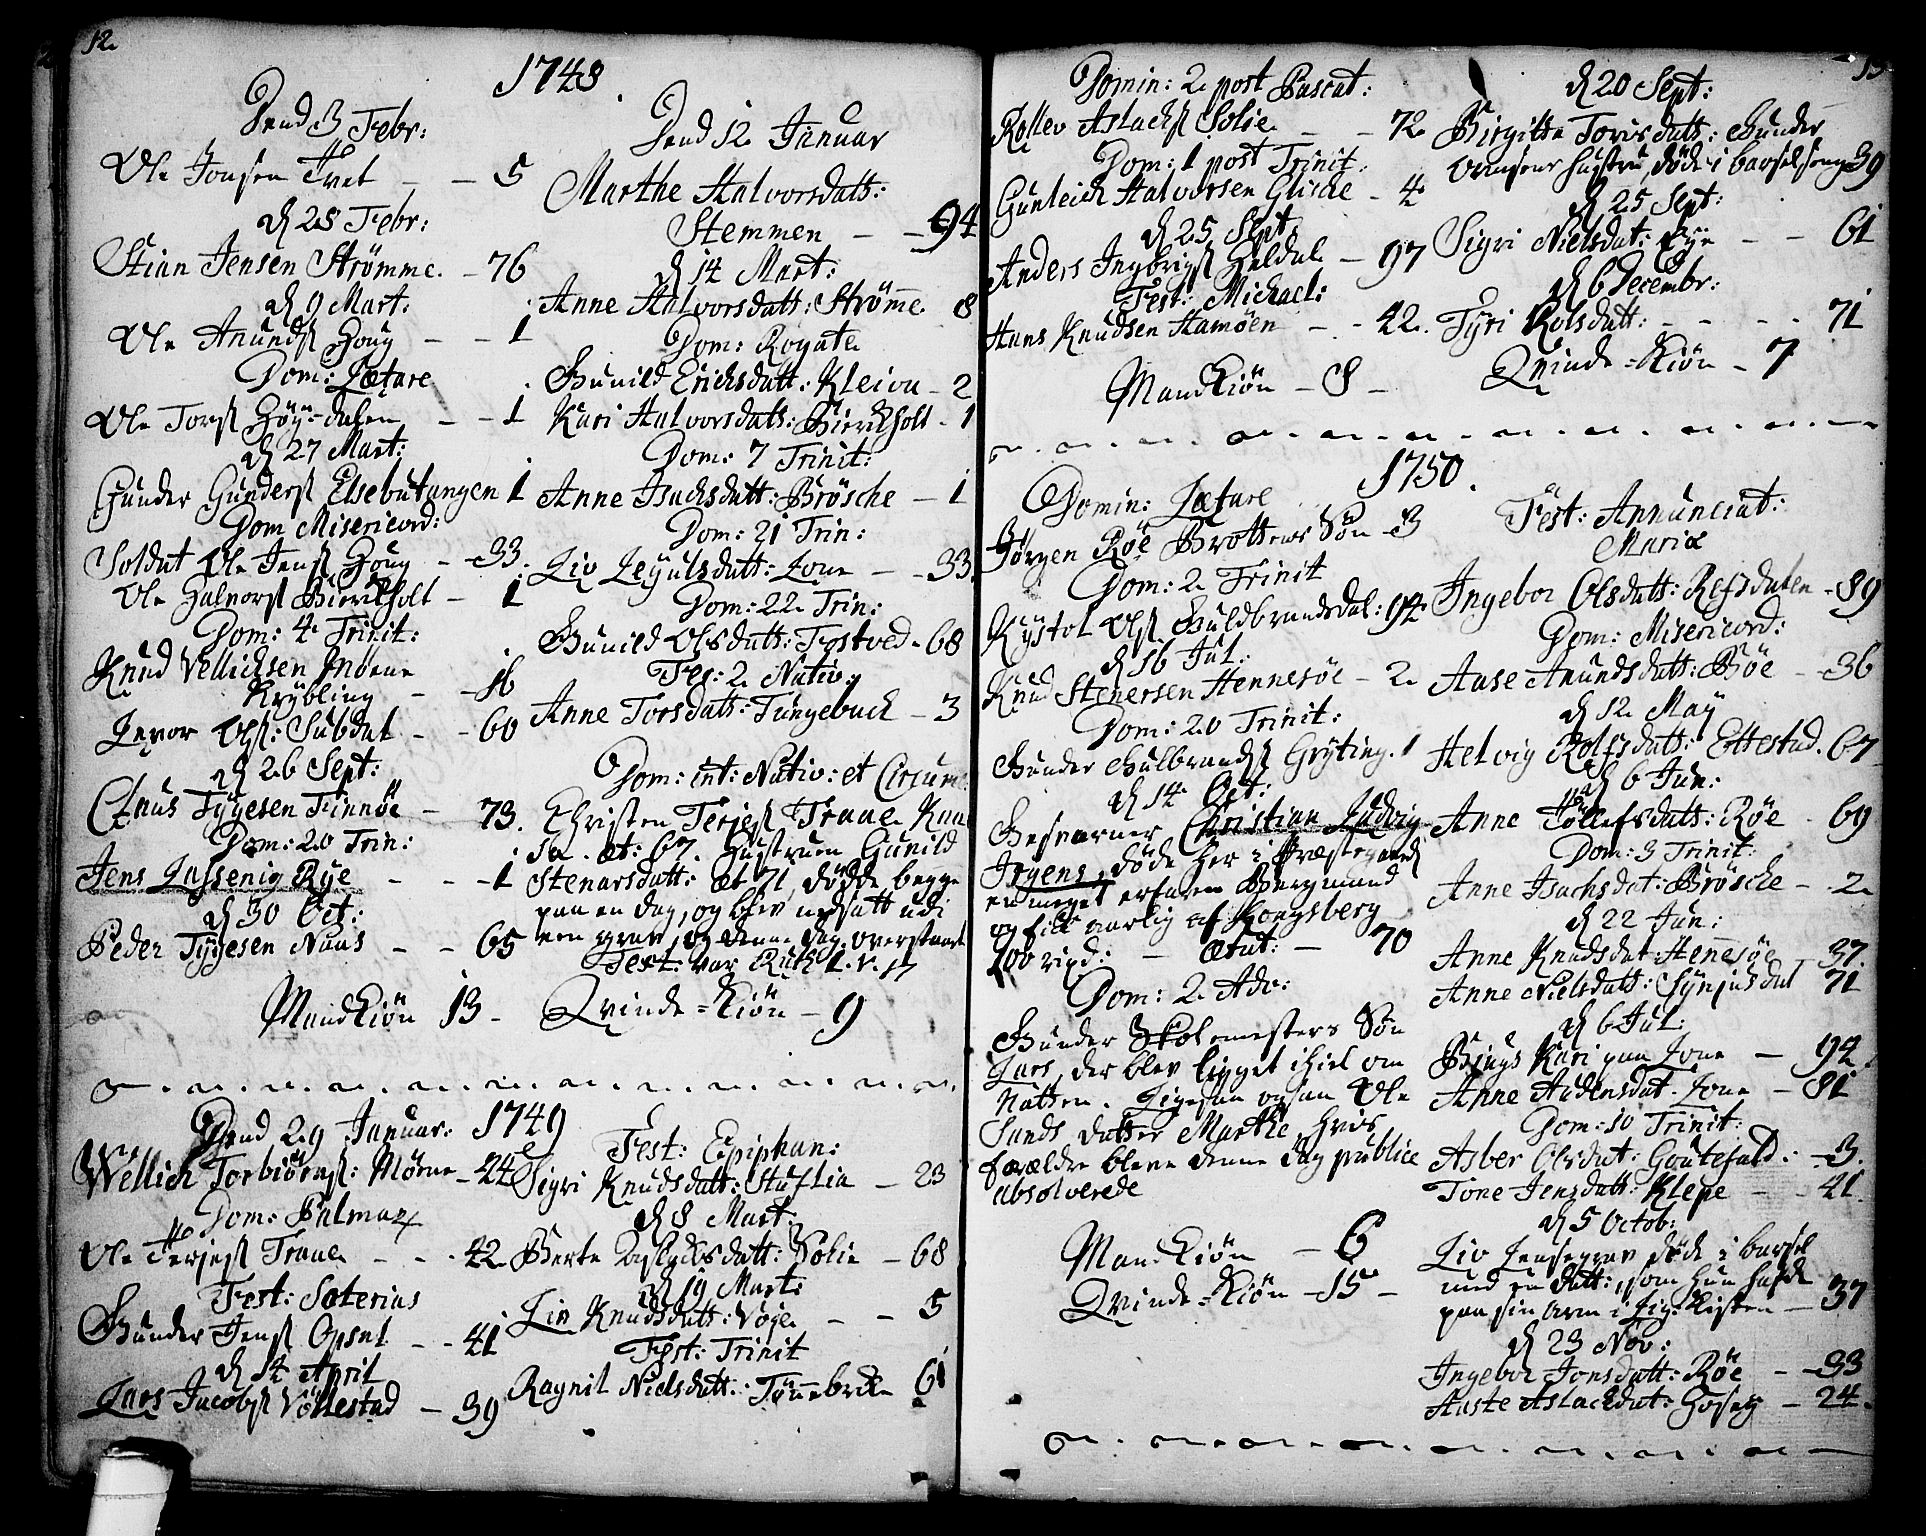 12.
1748.
Dend 3 Febr:
Ole Jonsen Tvet - - 5
d 28 Febr:
Stian Jensen Strømme. - 76
d 9 Mart:
Ole Anunds Houg - - 1
Dom: Lætare
Ole Tors Høy-dalen - - 1
d 27 Mart:
Gunder Gunders Elsebutangen 1
Dom Misericord:
Soldat Ole Jens Houg - 33.
Ole Halvors Bierkholt - 1
Dom: 4 Trinit:
Knud Vellichsen Moene
Krybling - - 16
Levor Ols: Subdal - - 60
d 26 Sept:
Claus Tygesen Finnøe - 73.
Dom: 20 Trin:
Jens Lassenig Rye - - - 1
d 30 Oct:
Peder Tygesen Naas - - 65
Mandkiøn 13 -
Dend 12 Januar
Marthe Halvorsdatt:
Stemmen - - 94
d 14 Mart:
Anne Halvorsdatt: Strøme. 8
Dom: Rogate
Gunild Erichsdatt: Kleiva - 2
Kari Halvorsdatt: Bierkholt - 1
Dom: 7 Trinit:
Anne Isachsdatt: Brøsche - 1
Dom: 21 Trin:
Liv Legulsdatt: Lone - - 33.
Dom: 22 Trin:
Gunild Olsdatt: Tostved - 68
Fes: 2 Nativ:
Anne Torsdatt: Tungebach - 3
Dom: int: Nativ: et Circum:
Christen Terjes Traae
æt: 67. Hustruen Gunild
Stenarsdatt: æt 71 dødde begge
paa en dag, og blev nedsatt udi
een grav, og denne dag overstaaet
Text: var Ruth 1. v. 17
Qvinde-Kiøn - 9
1749
Dend 29 Januar:
Wellich Torbiørns: Moene - 24
Dom: Palmar
Ole Terjes Traae - - - 42
Fest: Soterius
Gunder Jens Opsal - - 41
d 14 April
Lars Jacobs Vollestad - 39
Fest: Epiphan:
Sigri Knudsdatt: - 23
d 8 Mart:
Berte Aslachsdatt: Solie - 68
d 19 Mart:
Liv Knudsdatt: Voje - - 5
Fest: Trinit
Ragnil Nielsdatt: Tønnebrek 61
13
Domin: 2 post Pascat:
Rollev Aslachs Solie - - 72
Dom: 1 post Trinit:
Gunleich Halvorsen Glische - 4
d 25 Sept:
Anders Ingbrigs Haldal - 97
Fest: Michael:
Hans Knudsen Hamøen - - 42.
Mandkiøn - 8 -
d 20 Sept:
Birgitta Torisdatt: Gunder
hustru døde i barselseng 39
d 25 Sept:
Sigri Nielsdat: Rye - - 61
d 6 Decembr:
Tyri Rolsdatt: - - - - 71
Qvinde-Kiøn - 7
1750.
Domin: Lætare
Jørgen Røe Brottens Søn - 3
Dom: 2 Trinit
Kystol Ols Guldbrandsdal: 94
d 16 Jul:
Knud Stenersen Hennesøe - 2
Dom: 20 Trinit:
Gunder Gulbrands Gryting. 1
d 14 Oct:
Gesvorner Christian Ludvig
Irgens, døde her i Præstegaard
en meget erfaren Bergmand
og fik aarlig af Kongsberg
100 rixd: - Ætat: - 70
Dom: 2 Adv:
Gunder Skolemesters Søn
Lars, der blev ligget ihiel om
Natten. Ligesaa ogsaa Ole
Sunds datter Marthe, hvis
forældre bleve denne dag publice
absolverede
Mandkiøn - 6
Qvinde-Kiøn - 15 -
Fest: Annunciat:
Mariæ
Ingebor Olsdatt: Refsdalen - 89
Dom: Misericord:
Aase Anundsdatt: Bøe - - 36
d 12 May
Helvig Rolfsdatt: Ettestad. 67
d 6 Jun:
Anne Tollefsdatt: Røe - 69
Dom: 3 Trinit:
Anne Isachsdat: Brøsche - - 2
d 22 Jun:
Anne Knudsdat Henesøe 37.
Anne Nielsdatt: 71
d 6 Jul:
Bjugs Kari paa Lone - 94
Anne Audensdat. Lone - 81
Dom: 10 Trinit:
Asber Olsdat: Goutefald. - 3.
Tone Jensdatt: Klepe - - 41.
d 5 Octob:
Liv Lensegrav døde i barsel
med en datt:, som hun hafde
paa sin arm i Lig-Kisten - 37
d 23 Nov:
Ingebor Jonsdatt: Røe - - 33
Aaste Aslachdat: Gosey - 24.